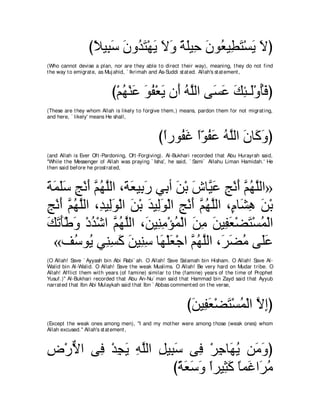 (لاَ يَسْتَطِيعُونَ حِيلَةً وَلاَ يَهْتَدُونَ سَبِيلاً)
(Who cannot devise a plan, nor are they able to direct their way), meaning, they do not find
the way to emigrate, as Mujahid, `Ikrimah and As-Suddi stated. Allah's statement,
(فَأُوْلَـئِكَ عَسَى اللَّهُ أَن يَعْفُوَ عَنْهُمْ)
(These are they whom Allah is likely to forgive them,) means, pardon them for not migrating,
and here, `likely' means He shall,
(وَكَانَ اللَّهُ عَفُوّاً غَفُوراً)
(and Allah is Ever Oft-Pardoning, Oft-Forgiving). Al-Bukhari recorded that Abu Hurayrah said,
"While the Messenger of Allah was praying `Isha', he said, `Sami` Allahu Liman Hamidah.' He
then said before he prostrated,
«اللَّهُمَّ أَنْجِ عَيَّاشَ بْنَ أَبِي رَبِيعَةَ، اللَّهُمَّ أَنْجِ سَلَمَةَ
بْنَ هِشَامٍ، اللَّهُمَّ أَنْجِ الْوَلِيدَ بْنَ الْوَلِيدِ، اللَّهُمَّ أَنْجِ
الْمُسْتَضْعَفِينَ مِنَ الْمُؤْمِنِينَ، اللَّهُمَّ اشْدُدْ وَطْأَتَكَ
عَلَى مُضَرَ، اللَّهُمَّ اجْعَلْهَا سِنِينَ كَسِنِي يُوسُفَ»
(O Allah! Save `Ayyash bin Abi Rabi`ah. O Allah! Save Salamah bin Hisham. O Allah! Save Al-
Walid bin Al-Walid. O Allah! Save the weak Muslims. O Allah! Be very hard on Mudar tribe. O
Allah! Afflict them with years (of famine) similar to the (famine) years of the time of Prophet
Yusuf.)" Al-Bukhari recorded that Abu An-Nu`man said that Hammad bin Zayd said that Ayyub
narrated that Ibn Abi Mulaykah said that Ibn `Abbas commented on the verse,
(إِلاَّ الْمُسْتَضْعَفِينَ)
(Except the weak ones among men), "I and my mother were among those (weak ones) whom
Allah excused." Allah's statement,
(وَمَن يُهَاجِرْ فِى سَبِيلِ اللَّهِ يَجِدْ فِى الاٌّرْضِ
مُرَاغَماً كَثِيراً وَسَعَةً)